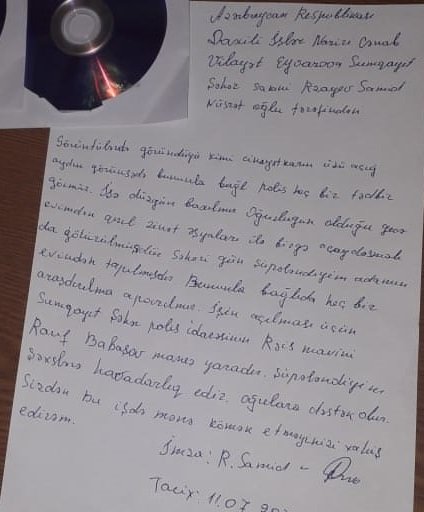 Azərbaycan Respublikası
Daxili İşlər Naziri Cənab
Vilayət Eyvazova Sumqayıt
Şəhər sakini Rzayev Samid
Nüsrət oğlu tərəfindən
Görüntülərdə göründüyü kimi cinayətkarın üzü açıq
aydın görünsədə bununla bağlı polis heç bir tədbir
görmür. İşə düzgün baxılmır Oğurluğun olduğu gecə
evimdən qızıl zinət əşyaları ilə birgə
da götürülmüşdür Səhəri gün şüpələndiyim adamın
evindən tapılmışdır Bununla bağlıda heç bir
araşdırılma aparılmır. İşin açılması üçün
Sumqayıt Şəhər polis idarəsinin Rəis mavini
Rauf Babaşov maneə yaradır. Şüpələndiyim
Şəxslərə havadarlıq edir. oğrulara dəstək olur.
Sizdən bu işdə mənə kömək etməyinizi xahiş
edirəm.
İmza: R. Samid
Tarix: 11.07